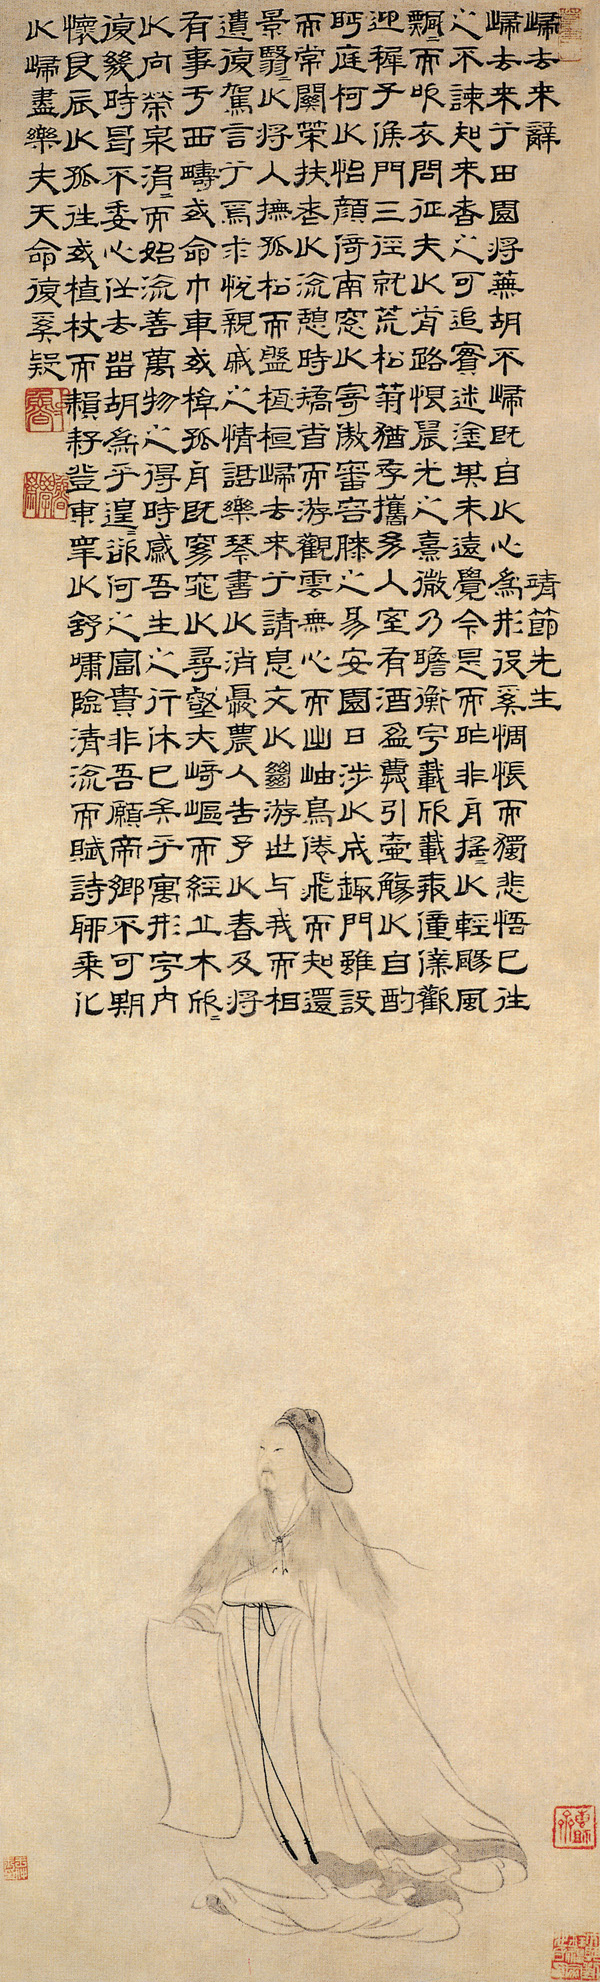 歸去来辭 靖節先生
歸去来兮田園將蕪胡不歸既自以心為形役奚惆悵而獨悲悟已往
之不諫知来者之可追實迷塗其未遠覺今是而昨非舟搖〻以輕颺風
飄〻而吹衣問征夫以前路恨晨光之熹微乃瞻衡宇載欣載奔僮僕歡
迎稚子候門三徑就荒松菊猶存攜幼入室有酒盈罇引壺觴以自酌
眄庭柯以怡顏倚南窓以寄傲審容膝之易安園日涉以成趣門雖設
而常關策扶老以流憩時矯首而游觀雲無心而出岫鳥倦飛而知還
景翳〻以將入撫孤松而盤桓歸去来兮請息交以絕游世与我而相
遺復駕言兮焉求悅親戚之情話樂琴書以消憂農人告予以春及將
有事于西疇或命巾車或棹孤舟既窈窕以尋壑亦崎嶇而經丘木欣〻
以向榮泉涓〻而始流善萬物之得時感吾生之行休已矣乎寓形宇内
復幾時曷不委心任去留胡為乎遑〻欲何之富貴非吾願帝鄉不可期
懷良辰以孤往或植杖而耘耔登東皋以舒嘯臨清流而賦詩聊乘化
以歸盡樂夫天命復奚疑